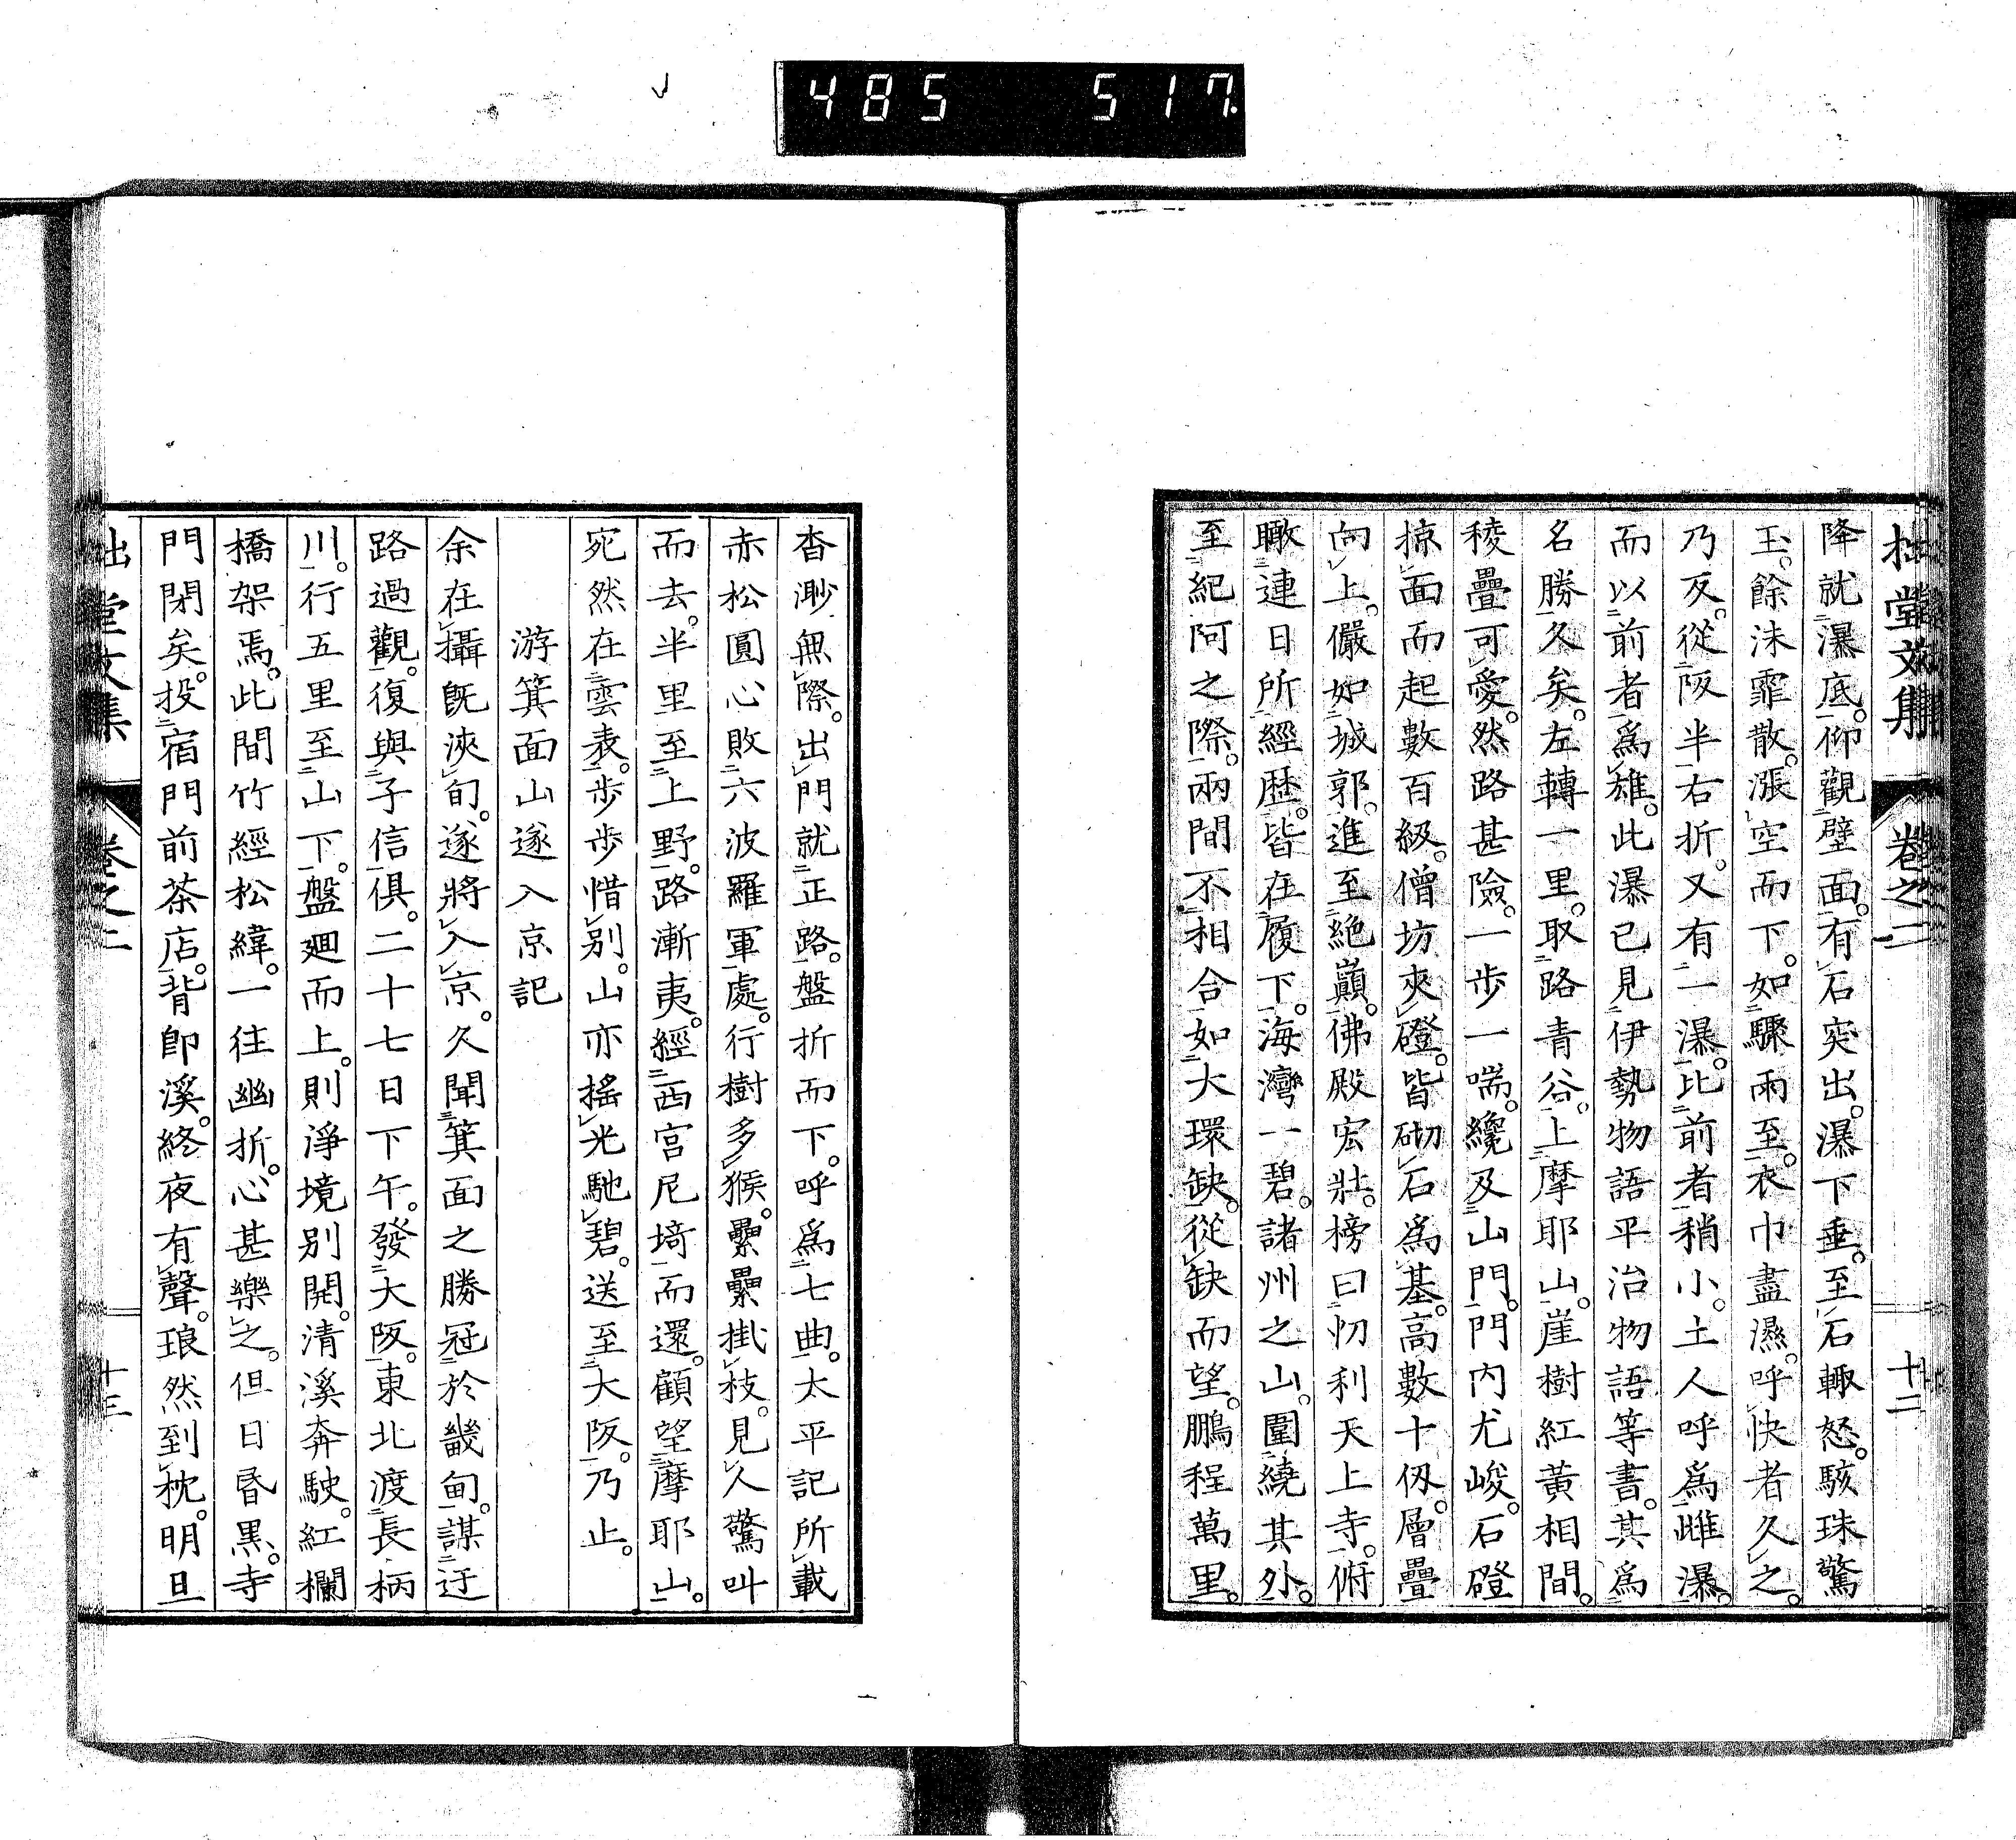 485 517
拙堂文集 卷之二 十二
降就瀑底。仰觀壁面。有石突出。瀑下垂。至石輙怒。駭珠驚
玉。餘沫霏散。漲空而下。如驟雨至。衣巾盡濕。呼快者久之。
乃反。從阪半右折。又有一瀑。比前者稍小。土人呼爲雌瀑。
而以前者爲雄。此瀑已見伊勢物語平治物語等書。其爲
名勝久矣。左轉一里。取路青谷。上摩耶山。崖樹紅黃相間。
稜疊可愛。然路甚險。一步一喘。纔及山門。門内尤峻。石磴
掠面而起數百級。僧坊夾磴。皆砌石爲基。高數十仭。層疊
向上。儼如城郭。進至絶巔。佛殿宏壯。榜曰忉利天上寺。俯
瞰連日所經歷。皆在履下。海灣一碧。諸州之山。圍繞其外。
至紀阿之際。兩間不相合。如大環缺。從缺而望。鵬程萬里。
杳渺無際。出門就正路。盤折而下。呼爲七曲。太平記所載
赤松圓心敗六波羅軍處。行樹多猴。纍纍掛枝。見人驚叫
而去。半里至上野。路漸夷。經西宮尼埼而還。顧望摩耶山。
宛然在雲表。步步惜别。山亦搖光馳碧。送至大阪。乃止。
游箕面山遂入京記
余在攝旣浹旬。遂將入京。久聞箕面之勝冠於畿甸。謀迂
路過觀。復與子信俱。二十七日下午。發大阪。東北渡長柄
川。行五里至山下。盤廻而上。則淨境别開。清溪奔駛。紅欄
橋架焉。此間竹經松緯。一往幽折。心甚樂之。但日昏黑。寺
門閉矣。投宿門前茶店。背卽溪。終夜有聲。琅然到枕。明旦
拙堂文集 卷之二 十三